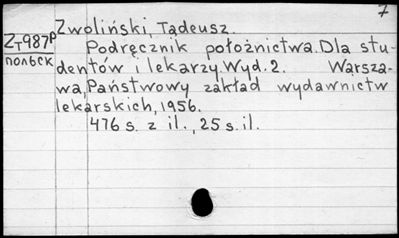 7
Zwoliński, Tadeusz.
ZT987P
Podręcznik położnictwa. Dla stu-
польск
dentów i lekarzy. Wyd. 2. Warsza-
wa, Państwowy zakład wydawnictw
lekarskich, 1956.
476 s. z il., 25 s. il.